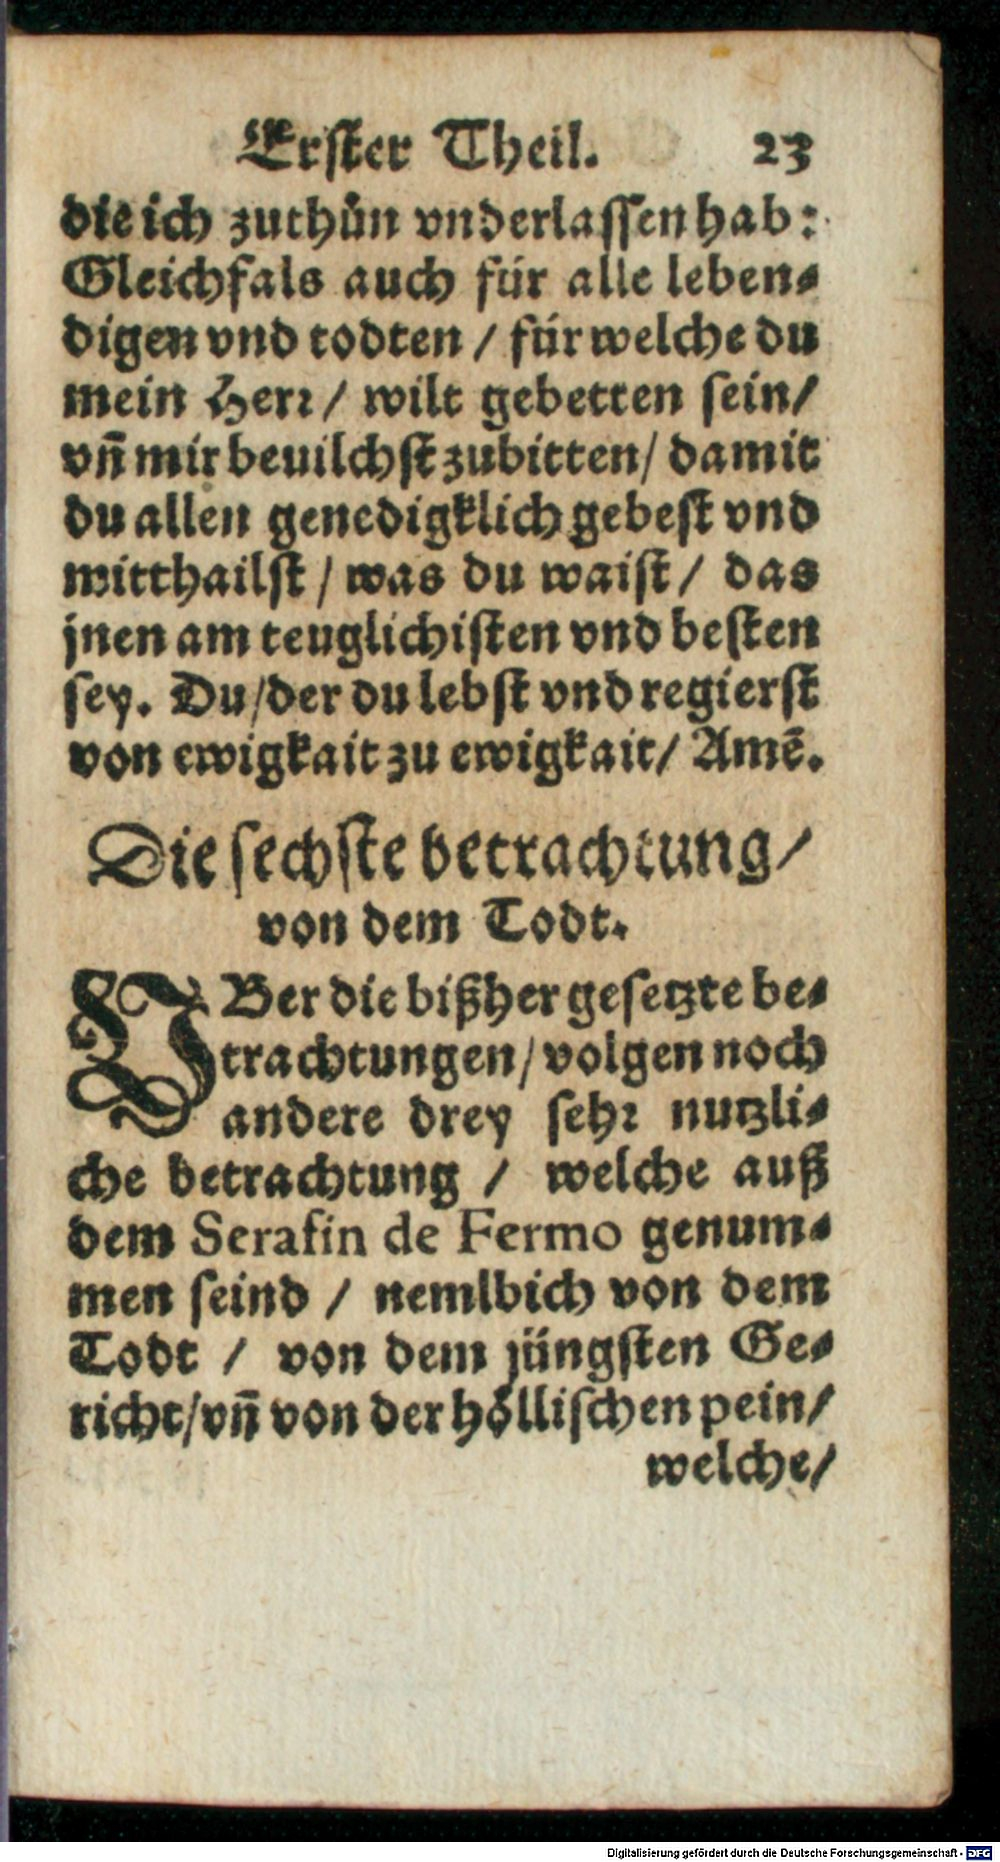 Erster Theil. 23
die ich zuthůn vnderlassen hab:
Gleichfals auch für alle leben⸗
digen vnd todten / für welche du
mein Herr / wilt gebetten sein /
vñ mir beuilchst zubitten / damit
du allen genedigklich gebest vnd
mitthailst / was du waist / das
jnen am teuglichisten vnd besten
sey. Du / der du lebst vnd regierst
von ewigkait zu ewigkait / Amẽ.
Die sechste betrachtung /
von dem Todt.
VBer die bißher gesetzte be⸗
trachtungen / volgen noch
andere drey sehr nutzli⸗
che betrachtung / welche auß
dem Serafin de Fermo genum⸗
men seind / nemlbich von dem
Todt / von dem jüngsten Ge⸗
richt / vñ von der höllischen pein /
welche /
Digitalisierung gefördert durch die Deutsche Forschungsgemeinschaft - DFG